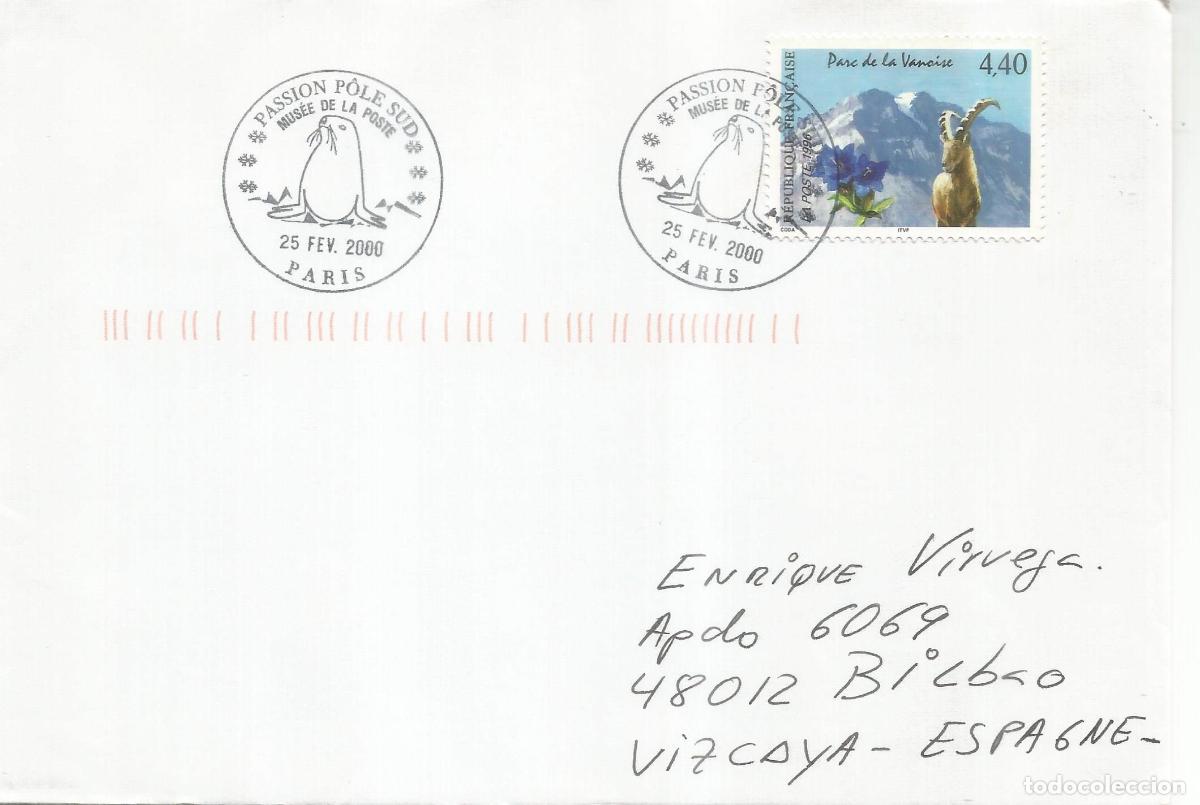 PASSION PÔLE SUD
MUSÉE DE LA POSTE
25 FEV. 2000
PARIS
PASSION PÔLE SUD
MUSÉE DE LA PO
25 FEV. 2000
PARIS
Parc de la Vanoise
4,40
RÉPUBLIQUE FRANÇAISE
LA POSTE 1996
CODA
ITVF
ENRIQUE Virvega.
Apdo 6069
48012 Bilbao
VIZCAYA - ESPAGNE-
todocoleccion